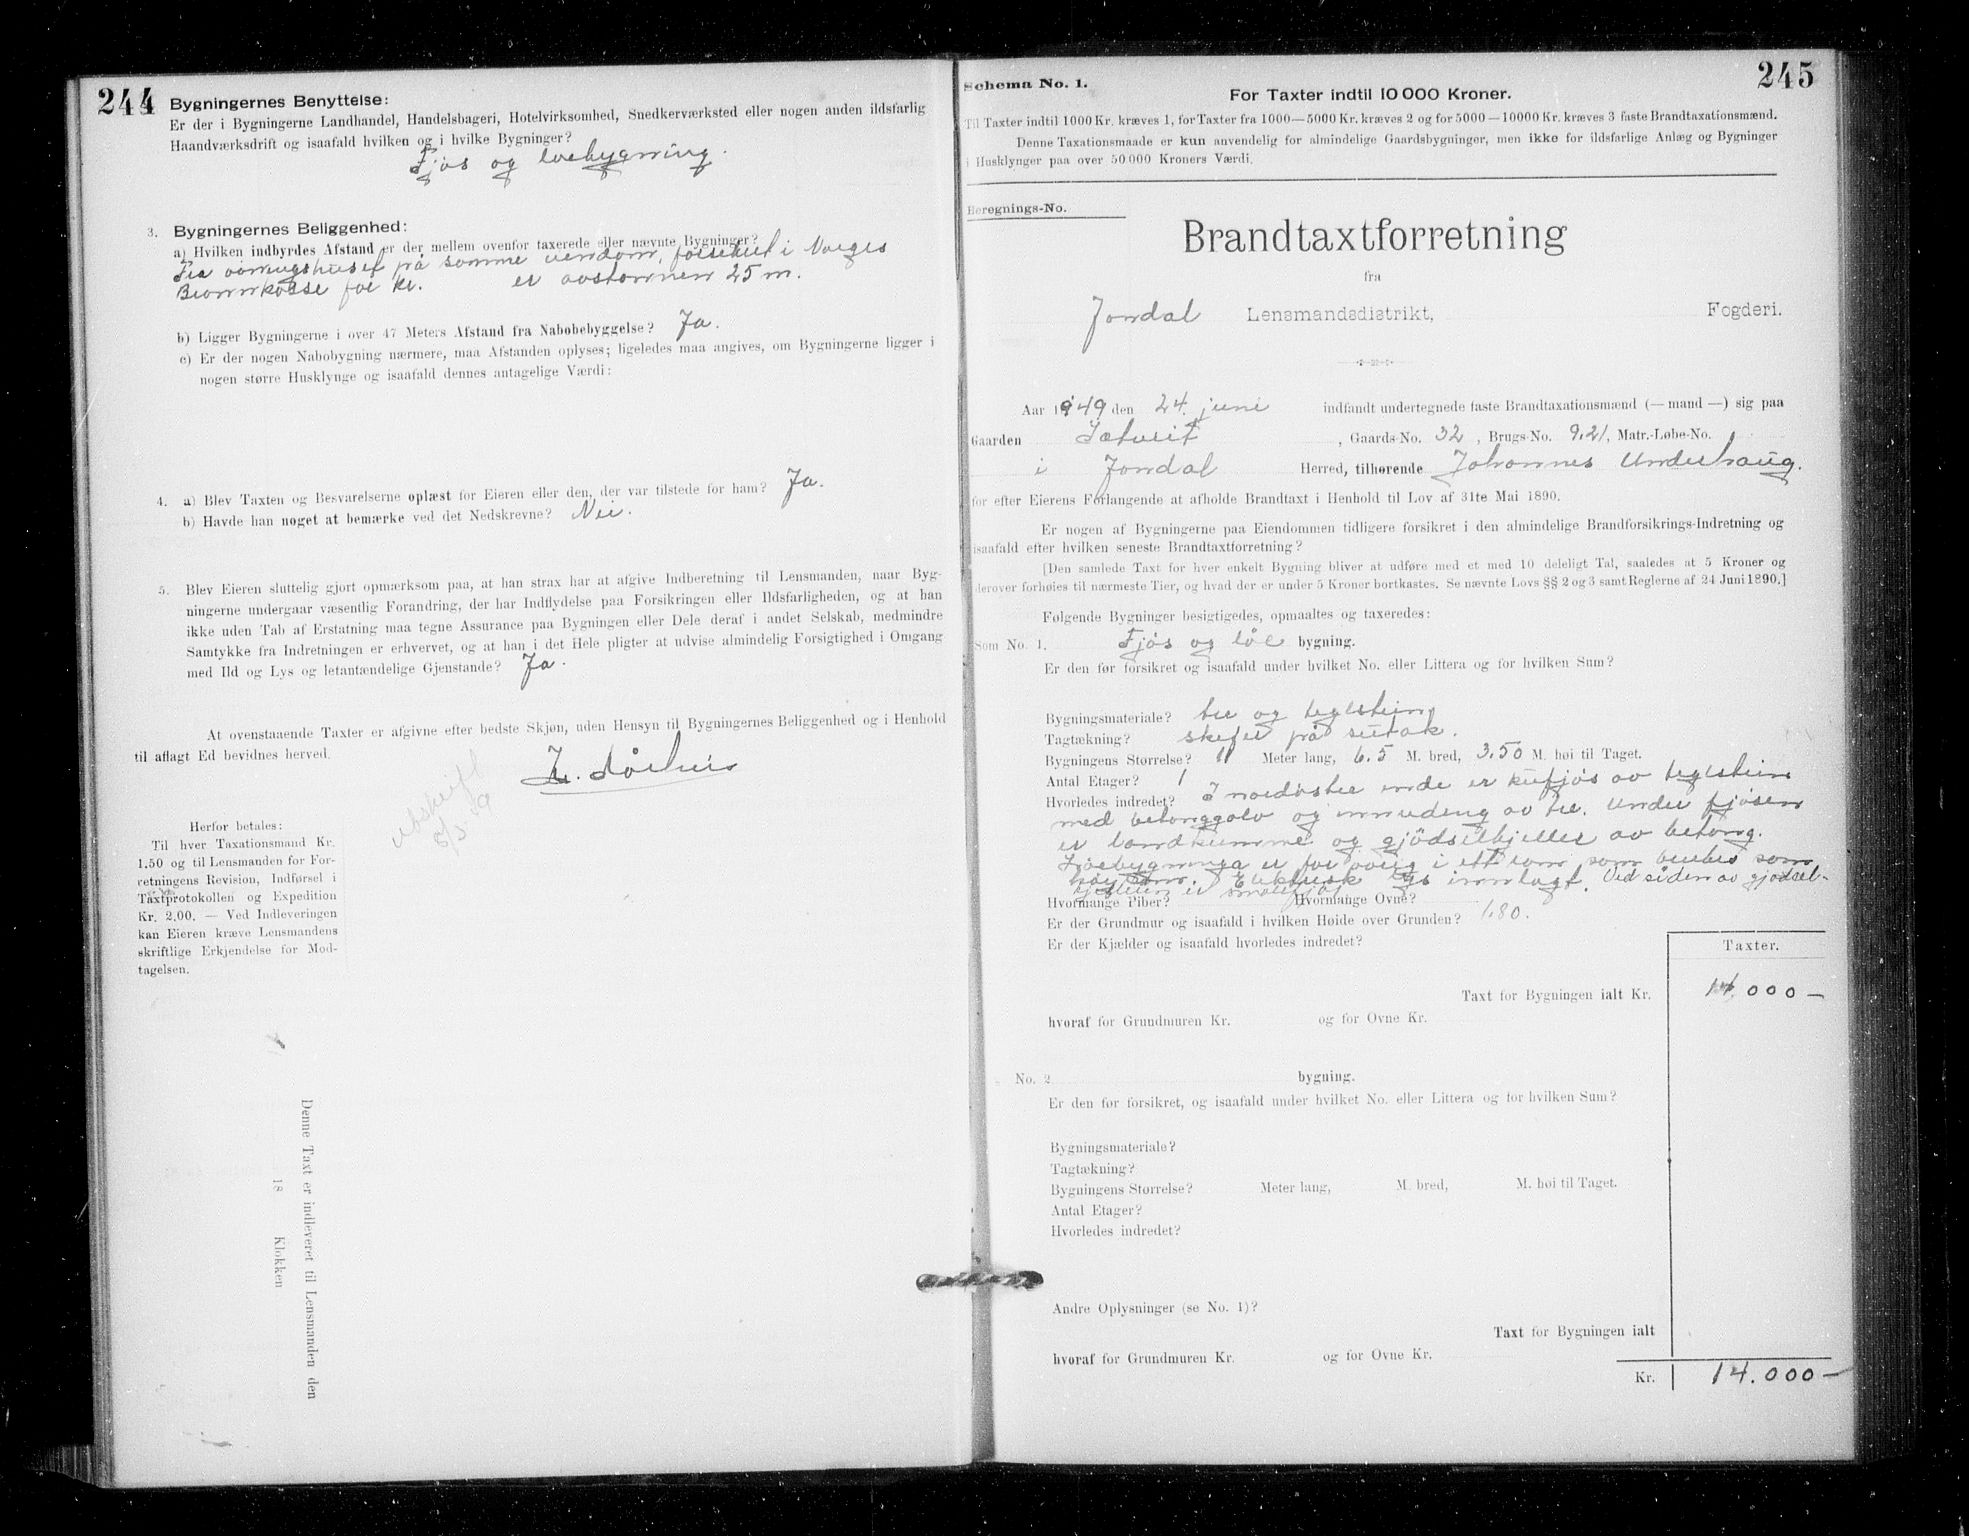 244
Bygningernes Benyttelse:
Er der i Bygningerne Landhandel, Handelsbageri, Hotelvirksomhed, Snedkerværksted eller nogen anden ildsfarlig
Haandværksdrift og isaafald hvilken og i hvilke Bygninger?
Fjøs og löebygning.
3. Bygningernes Beliggenhed:
a) Hvilken indbyrdes Afstand er der mellem ovenfor taxerede eller nævnte Bygninger?
Fra våningshuset på samme eiendom, forsikret i Norges
Brannkasse for kr. er avstannen 25 m.
b) Ligger Bygningerne i over 47 Meters Afstand fra Nabobebyggelse? Ja.
c) Er der nogen Nabobygning nærmere, maa Afstanden oplyses; ligeledes maa angives, om Bygningerne ligger i
nogen større Husklynge og isaafald dennes antagelige Værdi:
4. a) Blev Taxten og Besvarelserne oplæst for Eieren eller den, der var tilstede for ham? Ja.
b) Havde han noget at bemærke ved det Nedskrevne? Nei.
5. Blev Eieren sluttelig gjort opmærksom paa, at han strax har at afgive Indberetning til Lensmanden, naar Byg-
ningerne undergaar væsentlig Forandring, der har Indflydelse paa Forsikringen eller Ildsfarligheden, og at han
ikke uden Tab af Erstatning maa tegne Assurance paa Bygningen eller Dele deraf i andet Selskab, medmindre
Samtykke fra Indretningen er erhvervet, og at han i det Hele pligter at udvise almindelig Forsigtighed i Omgang
med Ild og Lys og letantændelige Gjenstande? Ja.
At ovenstaaende Taxter er afgivne efter bedste Skjøn, uden Hensyn til Bygningernes Beliggenhed og i Henhold
til aflagt Ed bevidnes herved.
Utskrift
Herfor betales:
Til hver Taxationsmand Kr.
1.50 og til Lensmanden for For-
retningens Revision, Indførsel i
Taxtprotokollen og Expedition
Kr. 2.00. — Ved Indleveringen
kan Eieren kræve Lensmandens
skriftlige Erkjendelse for Mod-
tagelsen.
Denne Taxt er indleveret til Lensmanden den
18 Klokken
245
Schema No. 1.
For Taxter indtil 10 000 Kroner.
Til Taxter indtil 1000 Kr. kræves 1, for Taxter fra 1000—5000 Kr. kræves 2 og for 5000—10000 Kr. kræves 3 faste Brandtaxationsmænd.
Denne Taxationsmaade er kun anvendelig for almindelige Gaardsbygninger, men ikke for ildsfarlige Anlæg og Bygninger
i Husklynger paa over 50 000 Kroners Værdi.
Beregnings-No.
Brandtaxtforretning
fra
Jondal Lensmandsdistrikt, Fogderi.
Aar 1949 den 24. juni indfandt undertegnede faste Brandtaxationsmænd (— mand —) sig paa
Gaarden , Gaards-No. 32 , Brugs-No. 9,21, Matr.-Løbe-No.
i Jondal Herred, tilhørende Johannes Underhaug.
for efter Eierens Forlangende at afholde Brandtaxt i Henhold til Lov af 31te Mai 1890.
Er nogen af Bygningerne paa Eiendommen tidligere forsikret i den almindelige Brandforsikrings-Indretning og
isaafald efter hvilken seneste Brandtaxtforretning?
[Den samlede Taxt for hver enkelt Bygning bliver at udføre med et med 10 deleligt Tal, saaledes at 5 Kroner og
derover forhøies til nærmeste Tier, og hvad der er under 5 Kroner bortkastes. Se nævnte Lovs §§ 2 og 3 samt Reglerne af 24 Juni 1890.]
Følgende Bygninger besigtigedes, opmaaltes og taxeredes:
Som No. 1. Fjøs og löe bygning.
Er den før forsikret og isaafald under hvilket No. eller Littera og for hvilken Sum?
Bygningsmateriale? tre og teglstein
Tagtækning? skifer på sutak.
Bygningens Størrelse? 11 Meter lang, 6.5 M. bred, 3.50 M. høi til Taget.
Antal Etager? 1
Hvorledes indredet? I nordøstre ende er kufjøs av teglstein
med betonggolv og innreding av tre. Under fjøsen
er landkumme og gjödselkjeller av betong.
Löebygninga er for øvrig i ett rom som brukes som
høyrom. Elektrisk lys innlagt. Ved siden av gjødsel-
kjelleren er smalefjøs
Hvormange Piber? Hvormange Ovne?
Er der Grundmur og isaafald i hvilken Høide over Grunden? 1.80.
Er der Kjælder og isaafald hvorledes indredet?
Taxter.
Taxt for Bygningen ialt Kr. 14.000 —
hvoraf for Grundmuren Kr. og for Ovne Kr.
No. 2 bygning.
Er den før forsikret, og isaafald under hvilket No. eller Littera og for hvilken Sum?
Bygningsmateriale?
Tagtækning?
Bygningens Størrelse? Meter lang, M. bred, M. høi til Taget.
Antal Etager?
Hvorledes indredet?
Andre Oplysninger (se No. 1)?
Taxt for Bygningen ialt
hvoraf for Grundmuren Kr. og for Ovne Kr.
Kr. 14.000 —